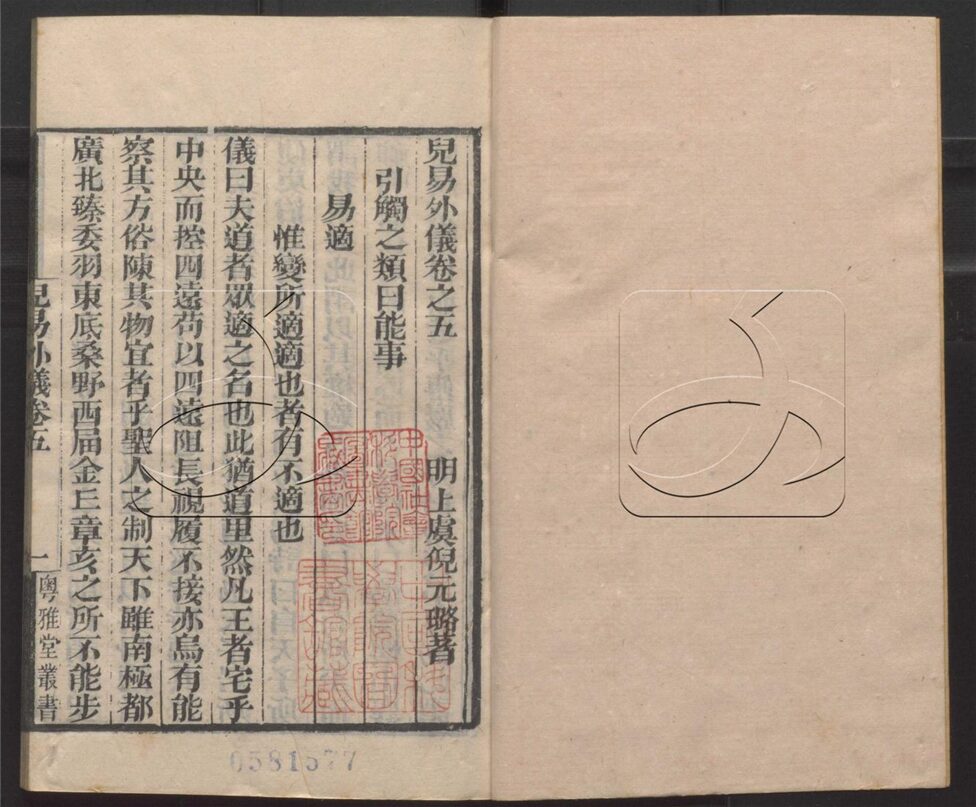 兒易外儀卷之五　明上虞倪元璐著
引觸之類曰能事
易適
惟變所適適也者有不適也
儀曰夫道者眾適之名也此猶道里然凡王者宅乎
中央而控四遠苟以四遠阻長視履不接亦烏有能
察其方俗陳其物宜者乎聖人之制天下雖南極都
廣北臻委羽東底桑野西屆金丘章亥之所不能步
兒易外儀卷五
一
粵雅堂叢書
0581577